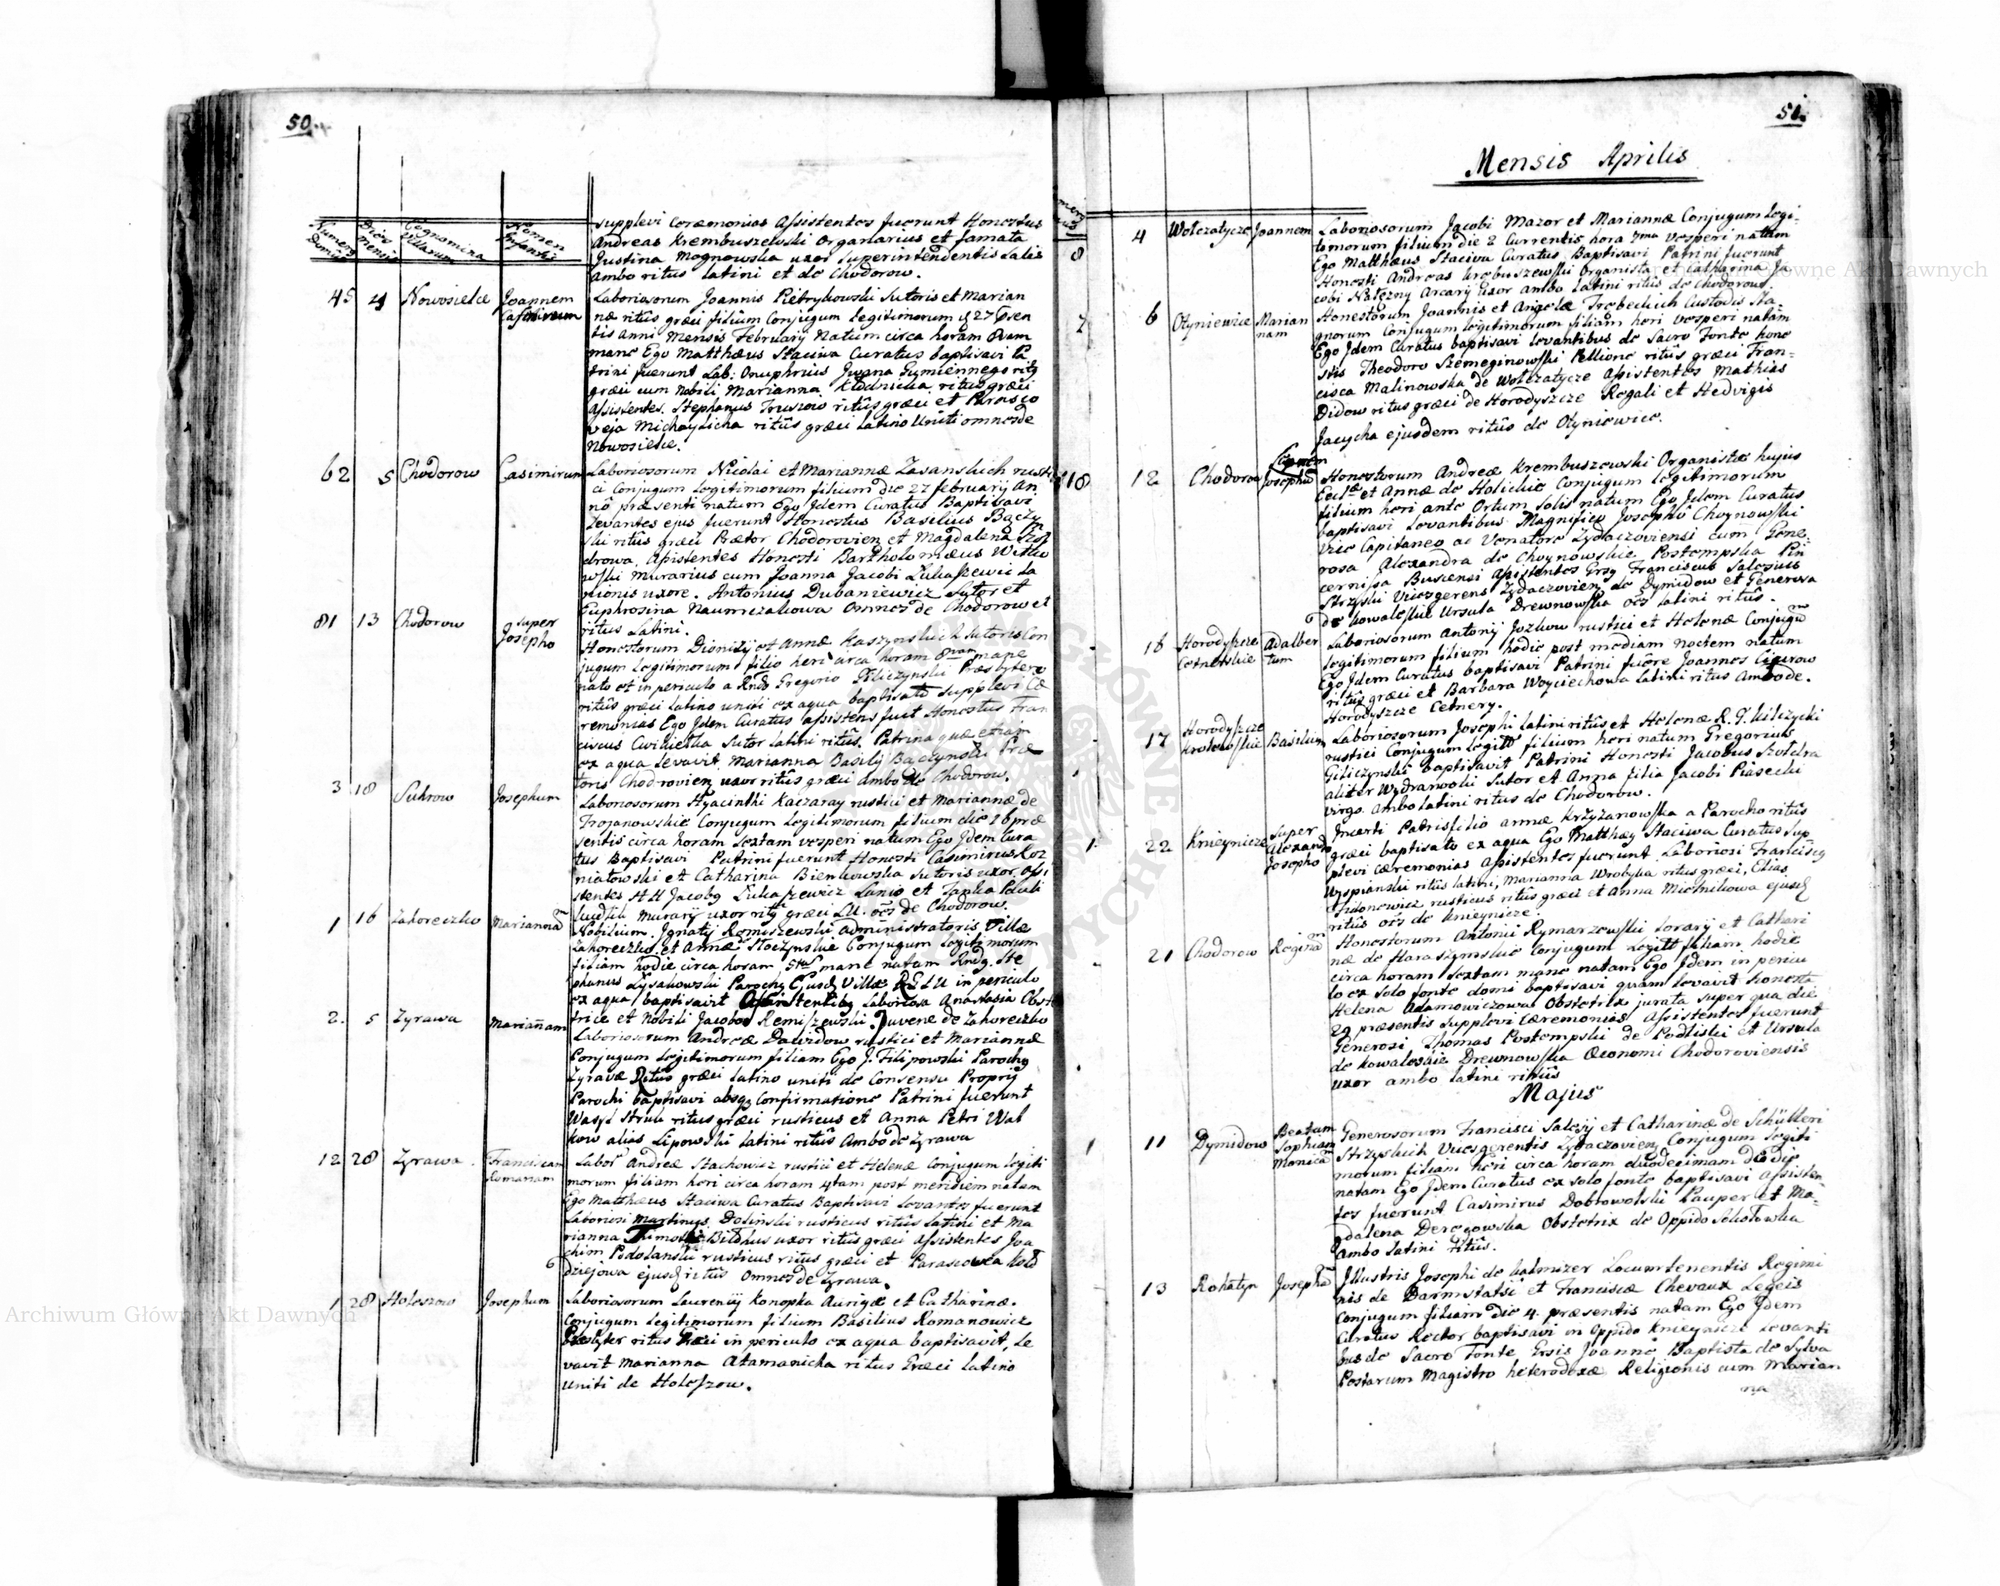 50.
Numerus Domus
Dies Mensis
Cognomina Villarum
Nomen Infantis
supplevi Cœremonias Assistentes fuerunt Honestus
Andreas Krembuszewski Organarius et famata
Justina Mognowska uxor Superintendentis Salis
ambo ritus latini et de Chodorow.
45 4 Nowosielce Joannem Casimirum
Laboriosorum Joannis Pietrykowski Sutoris et Marian
næ ritus græci filium Conjugum legitimorum 27 præsen
tis anni Mensis February Natum circa horam 8vam
mane Ego Matthæus Staciwa Curatus baptisavi Pa
trini fuerunt Lab: Onuphrius Jwana Gumiennego
græci cum Nobili Marianna ritus græci
Assistentes Stephanus Truszow ritûs græci et Parasco
veja Michaylicha ritûs græci Latino Uniti omnes de
Nowosielce.
62 5 Chodorow Casimirum
Laboriosorum Nicolai et Mariannæ Zasanskich rusti
ci Conjugum Legitimorum filium die 27 february An
no præsenti natum Ego Jdem Curatus Baptisavi
Levantes ejus fuerunt Honestus Basilius Baczyn
ski ritûs græci Prætor Chodorovien et Magdalena
drowa, Assistentes Honesti Bartholomæus Witko
wski Murarius cum Joanna Jacobi Lukaszewic La
nionis uxore. Antonius Dubaniewicz Sutor et
Euphrosina Naumczakowa Omnes de Chodorow et
ritus Latini.
81 13 Chodorow super Josepho
Honestorum Dionisij et Annæ Kaszynskich Sutoris Con
jugum legitimorum filio heri circa horam 8vam mane
nato et in periculo a Rndo Gregorio Giliczynski Præsbytero
ritûs græci latino uniti ex aqua baptisato supplevi Cæ
remonias Ego Jdem Curatus assistens fuit Honestus Fran
ciscus Cwikielka Sutor latini ritûs. Patrina quæ etiam
ex aqua Levavit Marianna Basilij Baczynski Præ
toris Chodrovien uxor ritûs græci Ambo de Chodorow.
3 18 Sukrow Josephum
Laboriosorum Hyacinthi Kaczaray rustici et Mariannæ de
Trojanowskie Conjugum Legitimorum filium die 16 præ
sentis circa horam sextam vesperi natum Ego Jdem Cura
tus Baptisavi Patrini fuerunt Honesti Casimirus Roz
niatowski et Catharina Bienkowska Sutoris uxor, Assi
stentes H H Jacobg Lukaszewicz Lanio et
Murarij uxor græci LU. de Chodorow.
1 16 Zahoreczko Mariannam
Nobilium Jgnatij Remiszewski administratoris Villæ
Zahoreczko et Annæ Stoczynskie Conjugum legitimorum
filiam hodie circa horam 5tam mane natam Rndg. Ste
phanus Lysakowski Parochg Ejusd Villæ R G L U in periculo
ex aqua baptisavit Assistentibg Laboriosa Anastasia Obste
trice et Nobili Jacobo Remiszewski Juvene de Zahoreczko
2. 5 Zyrawa Mariannam
Laboriosorum Andreæ Dawidow rustici et Mariannæ
Conjugum Legitimorum filiam Ego J. Filipowski Parochg
Zyravæ Ritûs græci latino uniti de Consensu Proprij
Parochi baptisavi absq Confirmatione Patrini fuerunt
Wasyl Struk ritus græci rusticus et Anna Petri Wal
kow alias Lipowski latini ritûs Ambo de Zyrawa
12 28 Zyrawa. Franciscam Romanam
Labor Andreæ Stachowicz rustici et Helenæ Conjugum legiti
morum filiam heri circa horam 4tam post meridiem natam
Ego Matthæus Staciwa Curatus Baptisavi Levantes fuerunt
Laboriosi Martinus Dolinski rusticus ritûs latini et Ma
rianna uxor ritûs græci Assistentes Joa
chim Podolanski rusticus ritûs græci et Parascowea
dziejowa ejusd ritûs Omnes de Zyrawa.
1 28 Holeszow Josephum
Laboriosorum Laurentij Konopka Aurigæ et Catharinæ.
Conjugum legitimorum filium Basilius Romanowicz
Præsbyter ritûs Græci in periculo ex aqua baptisavit, Le
vavit Marianna Atamanicha ritus Græci latino
uniti de Holeszow.
51.
Mensis Aprilis
8 4 Wolczatycze Joannem
Laboriosorum Jacobi Mazor et Mariannæ Conjugum legi-
timorum filium die 2 Currentis hora 7ma vesperi natum
Ego Matthæus Staciwa Curatus Baptisavi Patrini fuerunt
Honesti Andreas Krebuszewski Organista et Catharina Ja
cobi Nalezny Arcary Uxor Ambo Latini ritus de Chodorow.
7 6 Otyniewice Mariannam
Honestorum Joannis et Angelæ Trebeckich Custodis Sta-
gnorum Conjugum legitimorum filiam heri vesperi natam
Ego Jdem Curatus baptisavi levantibus de Sacro Fonte hone
stis Theodoro Szemeginowski Pellione ritûs græci Fran-
cisca Malinowska de Wolczatycze Assistentes Mathias
Didow ritus græci de Horodyszcze Regali et Hedvigis
Jacycha ejusdem ritûs de Otyniewice.
118 12 Chodorow Leonem Josephum
Honestorum Andreæ Krembuszewski Organistæ hujus
Eclæ et Annæ de Holickie Conjugum legitimorum
filium heri ante Ortum Solis natum Ego Jdem Curatus
baptisavi Levantibus Magnifico Josepho Choynowski
Vice Capitaneo ac Venatore Zydaczoviensi cum Gene-
rosa Alexandra de Choynowskie Postempska Pin
cernissa Buscensi Assistentes Grsg Franciscus Salesius
Strzyski Vicesgerens Zydaczovien de Dymidow et Generosa
de Kowaleskie Ursula Drewnowska oes latini ritûs.
16 Horodyszcze Cetnerskie Adalbertum
Laboriosorum Antonij Jozkow rustici et Helenæ Conjugum
legitimorum filium hodie post mediam noctem natum
Ego Jdem Curatus baptisavi Patrini fuere Joannes
ritûs græci et Barbara Woyciechowa Latini ritus Ambo de.
Horodyszcze Cetnery.
17 Horodyszcze Krolewskie Basilium
Laboriosorum Josephi latini ritûs et Helenæ R. G. Kilczycki
rustici Conjugum Legitt filium heri natum Gregorius
Giliczynski baptisavit Patrini Honesti Jacobus Szoldra
aliter Wydrawolski Sutor et Anna filia Jacobi Piasecki
virgo. Ambo latini ritus de Chodorow.
1 22 Knieynicze super Alexandro Josepho
Jncerti Patris filio annæ Krzyzanowska a Parocho ritûs
græci baptisato ex aqua Ego Matthæg Staciwa Curatus sup
plevi Cæremonias Assistentes fuerunt Laboriosi Franciscg
Wyspianski ritûs latini, Marianna Wrobylka ritus græci, Elias
Fidonowicz rusticus ritûs græci et Anna Michnikowa ejusd
ritûs oes de Knieynicze.
21 Chodorow Reginam
Honestorum Antonii Rymarzewski Lorarij et Cathari
næ de Haraszymskie Conjugum Legitt filiam hodie
circa horam sextam mane natam Ego Jdem in pericu
lo ex solo fonte domi baptisavi quam levavit honesta
Helena Adamowiczowa Obstetrix jurata super qua die
29 præsentis supplevi Cæremonias Assistentes fuerunt
Generosi Thomas Postempski de Podliski et Ursula
de Kowaleskie Drewnowska Œconomi Chodoroviensis
uxor ambo latini ritûs
Majus
1 11 Dymidow Beatam Sophiam Monicam
Generosorum Francisci Salesij et Catharinæ de Schütteri
Strzyskich Vicesgerentis Zydaczovien Conjugum legiti
morum filiam heri circa horam duodecimam de die
natam Ego Jdem Curatus ex solo fonte baptisavi Assisten-
tes fuerunt Casimirus Dobrowolski Pauper et Ma-
gdalena Deregowska Obstetrix de Oppido Sokolowka
Ambo latini ritûs.
13 Rohatyn Josephum
Jllustris Josephi de Locumtenentis Regimi
nis de Darmstatsi et Franciscæ Chevaux Legeis
Conjugum filium die 4. præsentis natam Ego Jdem
Curatus Rector baptisavi in Oppido Knieynicze Levanti
bus de Sacro Fonte Grsis Joanne Baptista de Sylva
Postarum Magistro heterodoxæ Religionis cum Marian
na
Archiwum Główne Akt Dawnych